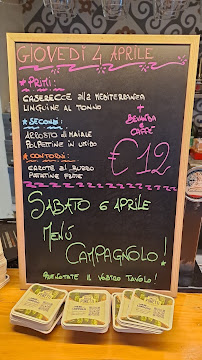 GIOVEDÌ 4 APRILE
PRIMI:
CASERECCE ALLA MEDITERRANEA
LINGUINE AL TONNO
SECONDI:
ARROSTO DI MAIALE
POLPETTINE IN UMIDO
CONTORNI:
CAROTE AL BURRO
PATATINE FRITTE
+
BEVANDA
E
CAFFÈ
€ 12
SABATO 6 APRILE
MENÙ
CAMPAGNOLO!
PRENOTATE IL VOSTRO TAVOLO!